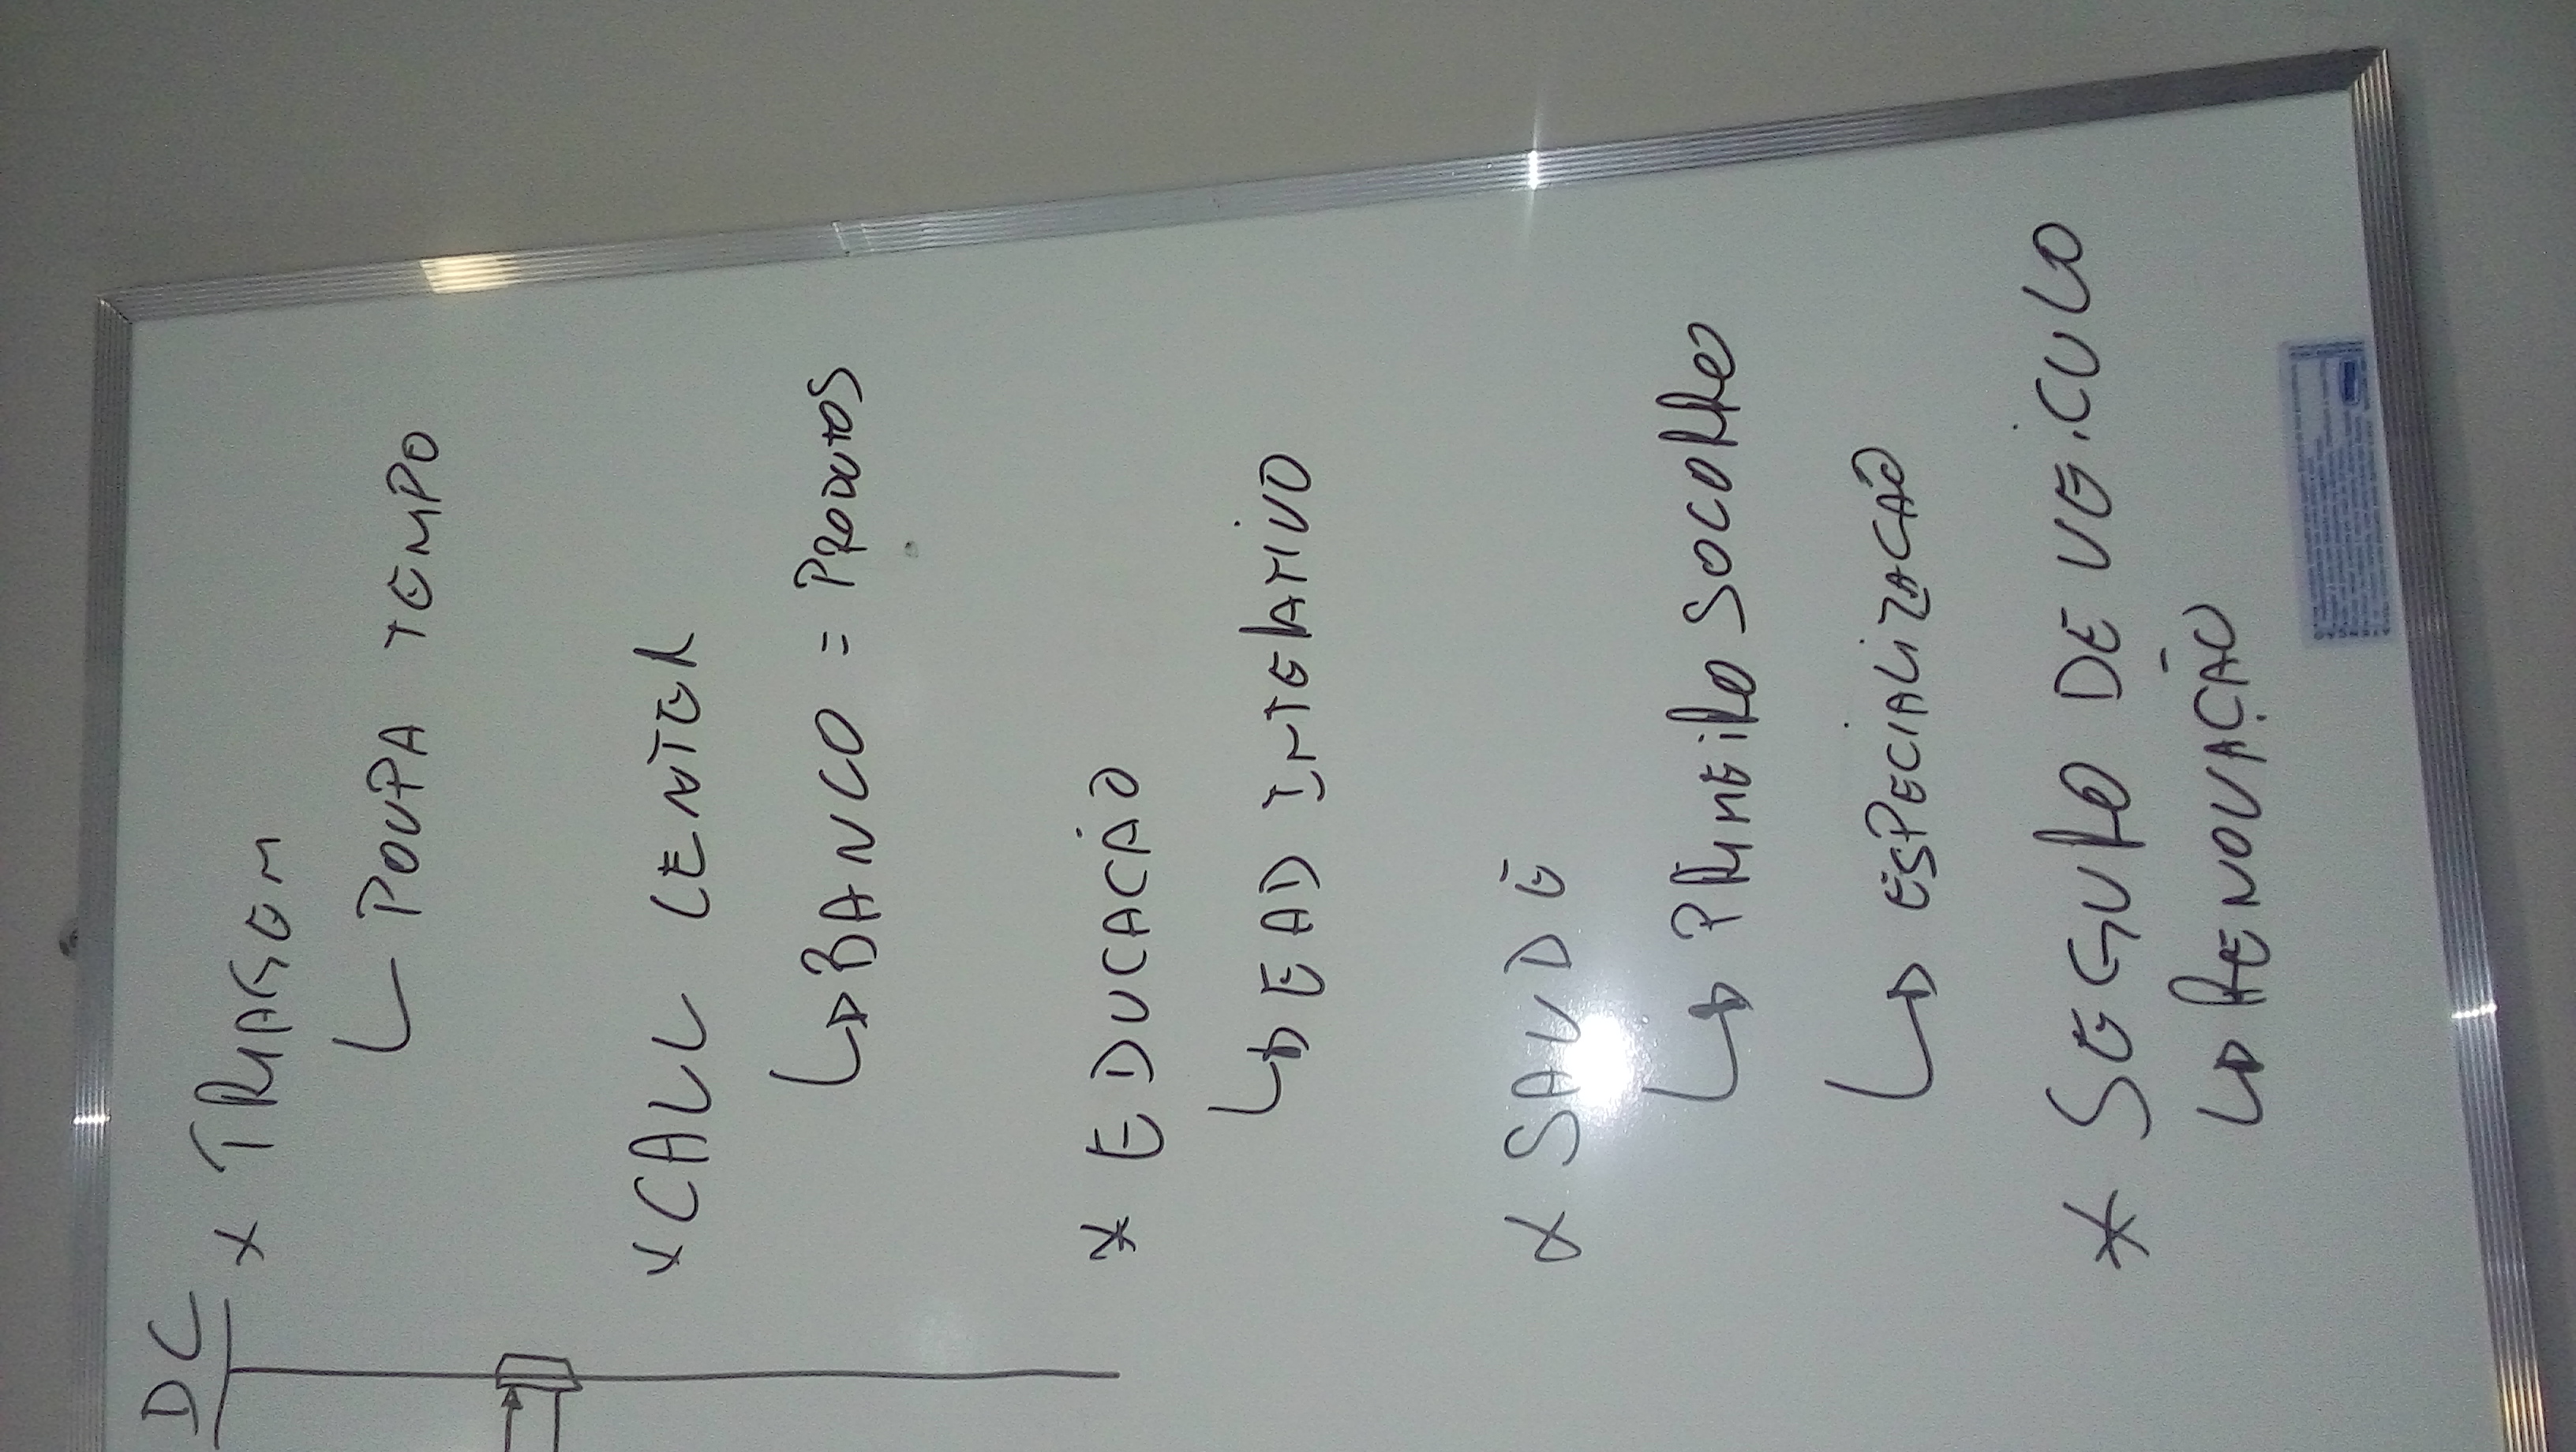 DC
* TRIAGEM
POUPA TEMPO
* CALL CENTER
BANCO = PRODUTOS
* EDUCACÃO
EAD INTERATIVO
* SAUDE
PRIMEIRO SOCORRO
ESPECIALIZACAO
* SEGURO DE VEICULO
RENOVAÇÃO